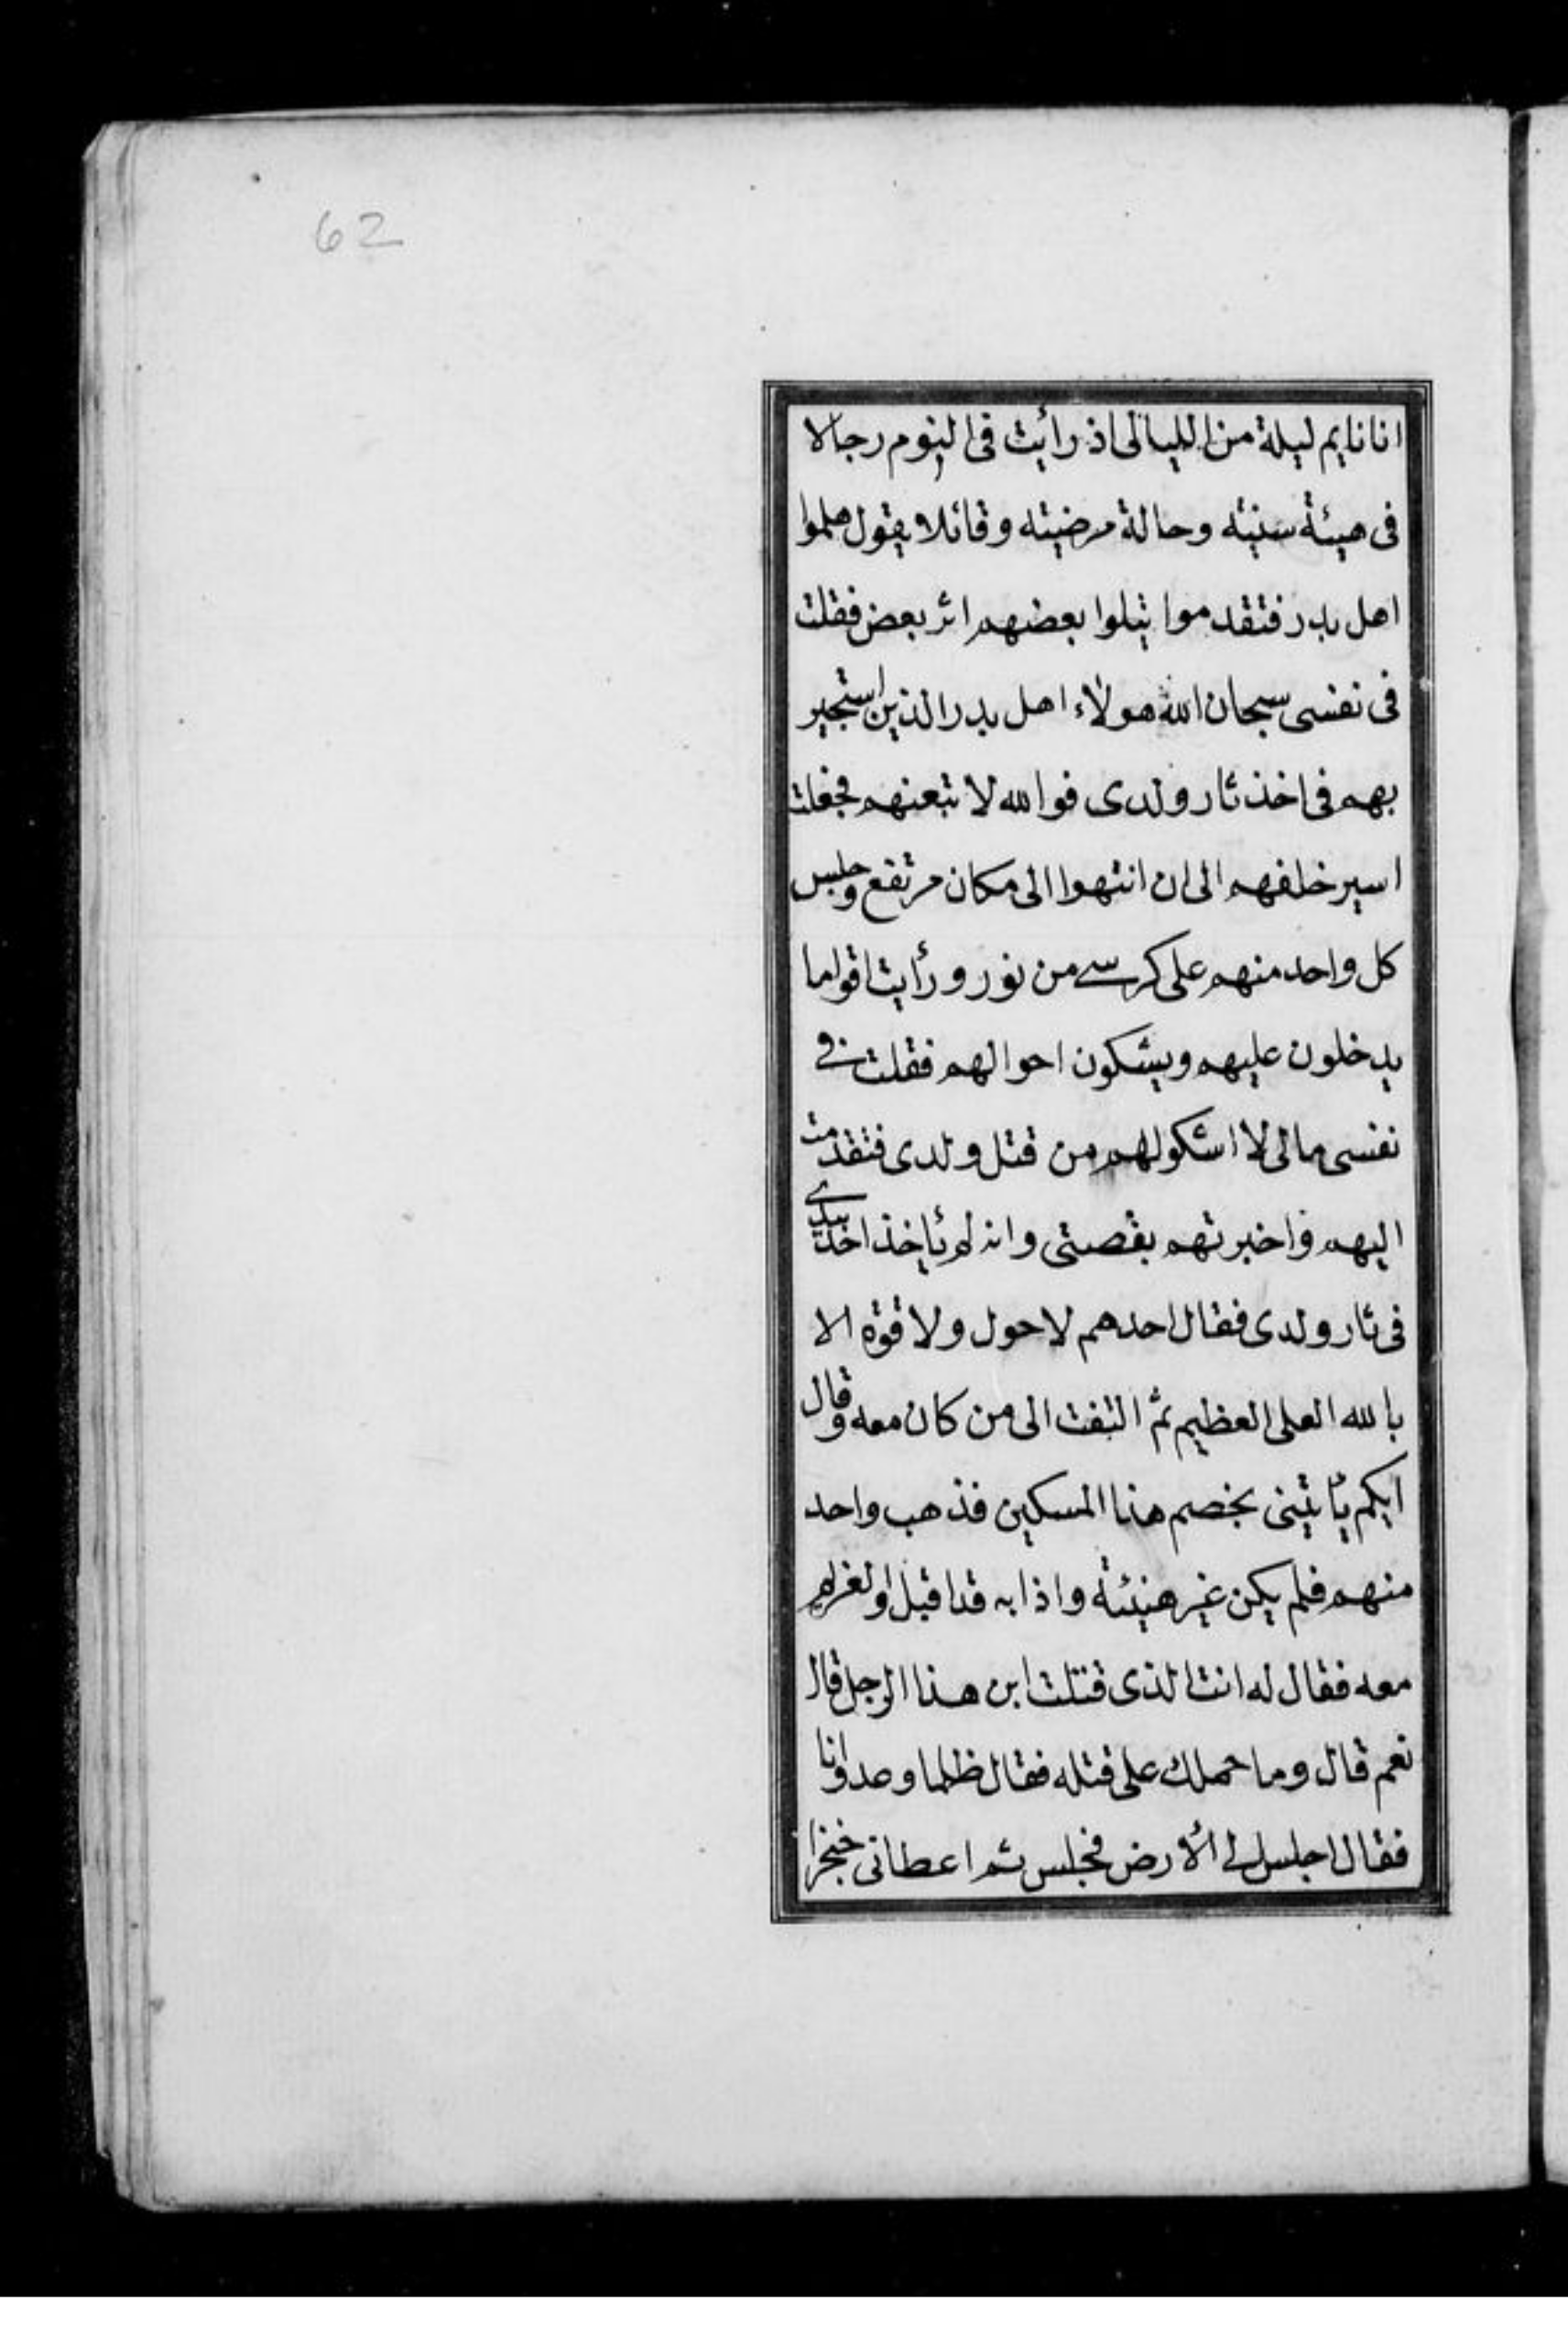 62
انا نايم ليلة من الليالى اذ رأيت فى النوم رجالا
فى هيئة سنيه وحالة مرضيه وقائلا يقول هلموا
اهل بدر فتقدموا يتلوا بعضهم اثر بعض فقلت
فى نفسى سبحان الله هولاء اهل بدر الذين استجير
بهم فى اخذ ثار ولدى فوالله لا تبعنهم فجعلت
اسير خلفهم الى ان انتهوا الى مكان مرتفع وجلس
كل واحد منهم على كرسى من نور ورأيت اقواما
يدخلون عليهم ويشكون احوالهم فقلت فى
نفسى مالى لا اشكو لهم من قتل ولدى فتقدمت
اليهم واخبرتهم بقصتى وانه لم يأخذ احد بيدى
فى ثار ولدى فقال احدهم لا حول ولا قوة الا
بالله العلى العظيم ثم التفت الى من كان معه وقال
ايكم يأتينى بخصم هذا المسكين فذهب واحد
منهم فلم يكن غير هنيئة واذا به قد اقبل
معه فقال له انت الذى قتلت ابن هذا الرجل قال
نعم قال وما حملك على قتله فقال ظلما وعدوانا
فقال اجلس فى الأرض فجلس ثم اعطانى خنجرا